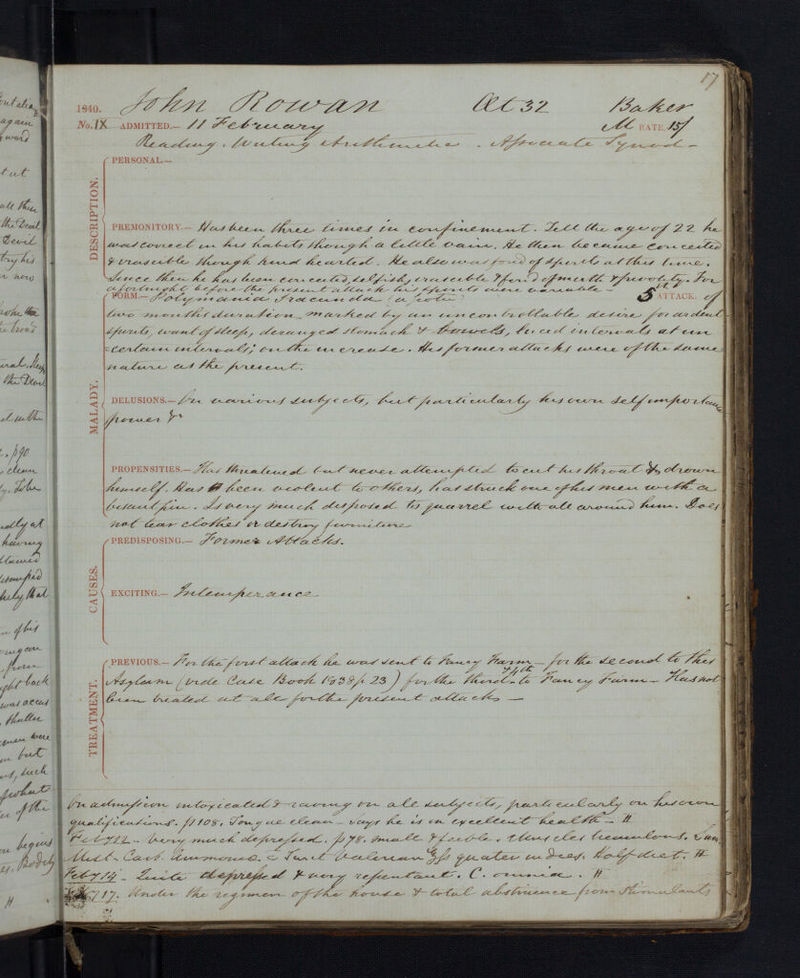 17
1840. John Rowan Aet 32 Baker
No. IX ADMITTED.— 11 February M RATE. 15/
Reading. Writing Arithmetic. Associate Synod—
DESCRIPTION.
PERSONAL.—
PREMONITORY.— Has been three times in confinement. Till the age of 22 he
was correct in his habits though a little vain. He then became conceited
& irascible though kind hearted. He also was fond of spirits at this time.
Since then he has been conceited, selfish, irascible & fond of mirth & frivolity. For
a fortnight before the present attack his spirits were variable—
MALADY.
FORM.— Polymania Iracunda (a potu) 5th ATTACK. of
two months duration marked by an uncontrollable desire for ardent
spirits, want of sleep, deranged stomach & bowels, lucid intervals at un
=certain intervals; on the increase. His former attacks were of the same
nature as the present.
DELUSIONS.— On various subjects, but particularly his own self importance
power &c
PROPENSITIES.— Has threatened but never attempted to cut his throat & drown
himself. Has been violent to others, has struck one of his men with a
biscuit pin. Is very much disposed to quarrel with all around him. Does
not tear clothes or destroy furniture
CAUSES.
PREDISPOSING.— Former Attacks.
EXCITING.— Intemperance
TREATMENT.
PREVIOUS.— For the first attack he was sent to Fancy Farm— for the second to this
Asylum (vide Case Book 1838 p. 23) for the third & 4th to Fancy Farm— Has not
been treated at all for the present attack—
On admission intoxicated & raving on all subjects, particularly on his own
qualifications. p 108. Tongue clean— says he is in excellent health— #
Feby 12— Very much depressed. p 78. small & feeble. Muscles tremulous.
Mist. Carb. Ammoniae c Tinct Valerian quater in dies. Half diet. #
Feby 14— Quite depressed & very repentant. C. omnia. #
17. Under the regimen of the house & total abstinence from stimulants